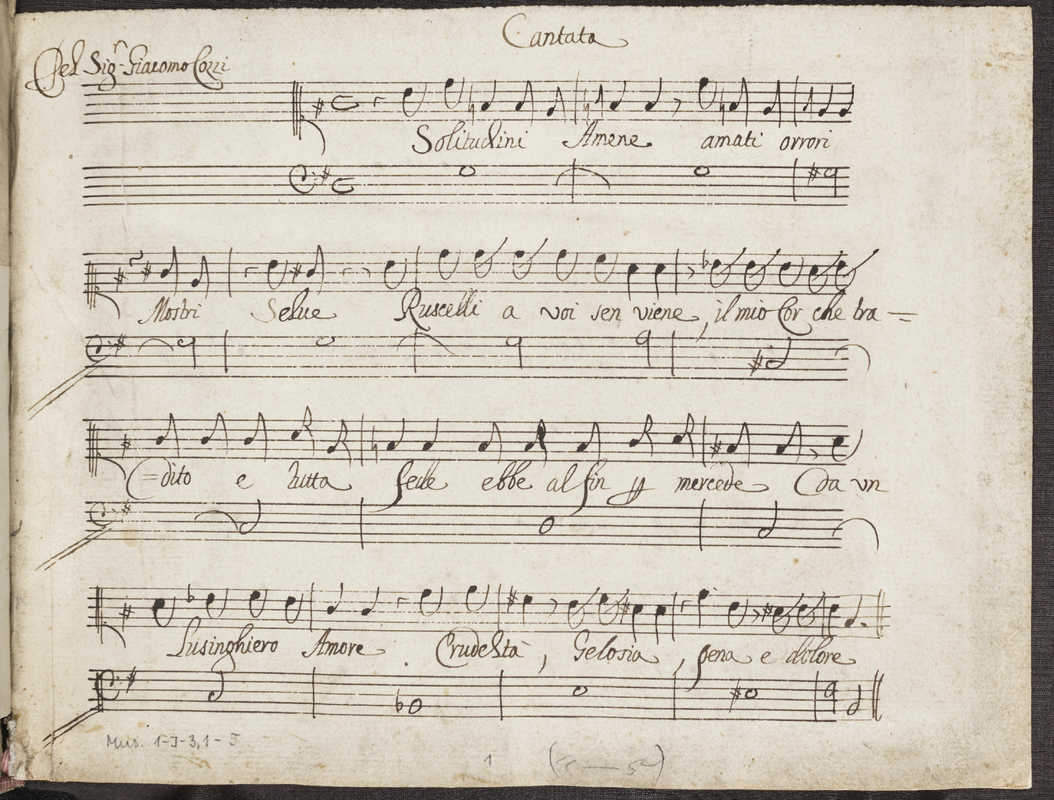 Cantata
Del Sigr. Giacomo Cozzi
Solitudini Amene amati orrori
Mostri Selue Ruscelli a voi sen viene, il mio Cor che tra=
=dito e tutta fede ebbe al fin mercede Da vn
Lusinghiero Amore Crudeltà, Gelosia, pena e dolore
Mus. 1-J-3,1-5
1